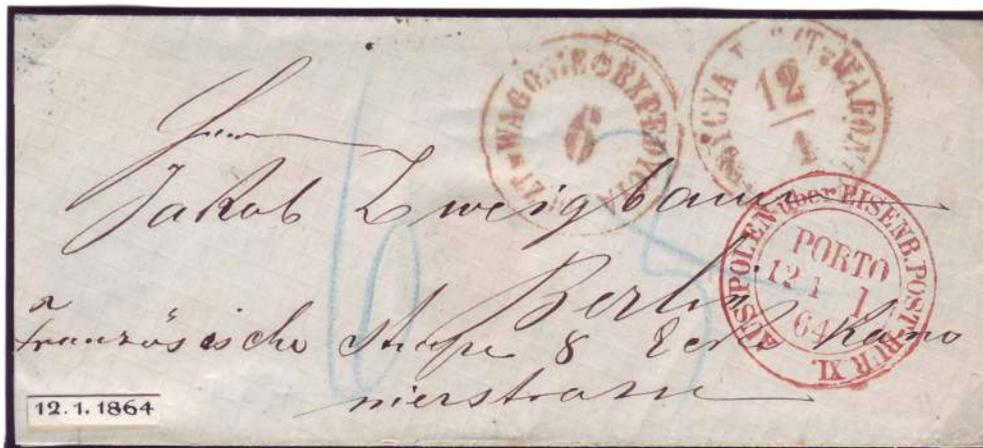 WAGONIE EXPEDYCIA
6
12
1
WAGON
AUS POLEN über EISENB. POST-BUR XI.
PORTO
12 1 1
64
Herrn
Jakob Zweigbaum
Berlin
Französische Straße 8 Ecke Kano
nierstrasse
6
12.1.1864